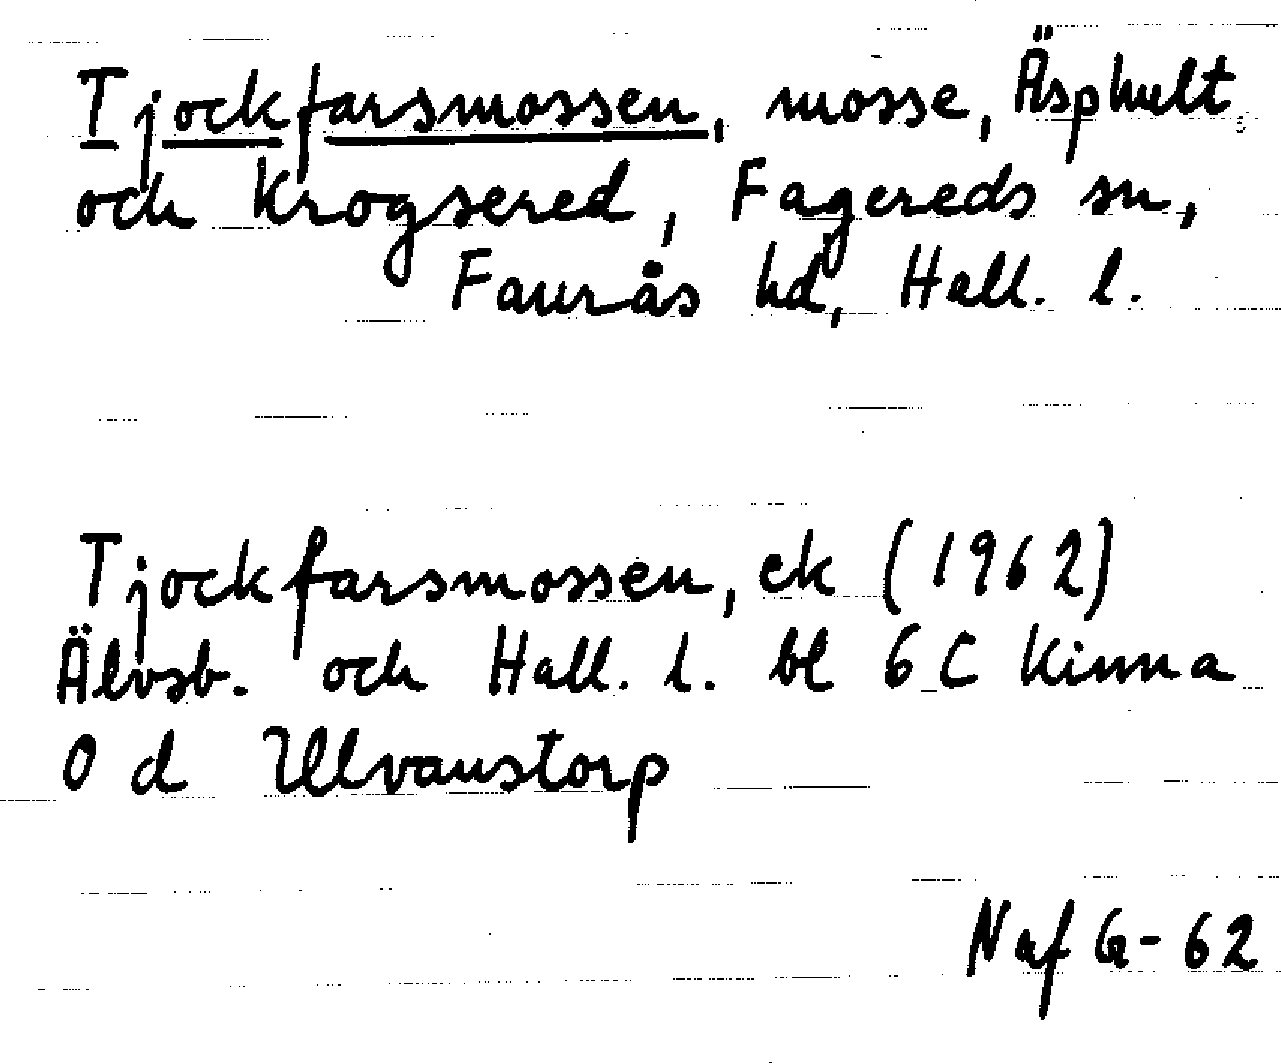 Tjockfarsmossen, mosse, Äsphult
och Krogsered, Fagereds sn,
Faurås hd, Hall. l.
Tjockfarsmossen, ek (1962)
Älvsb. och Hall. l. bl 6 C Kinna
0 d Ullvanstorp
Naf G-62